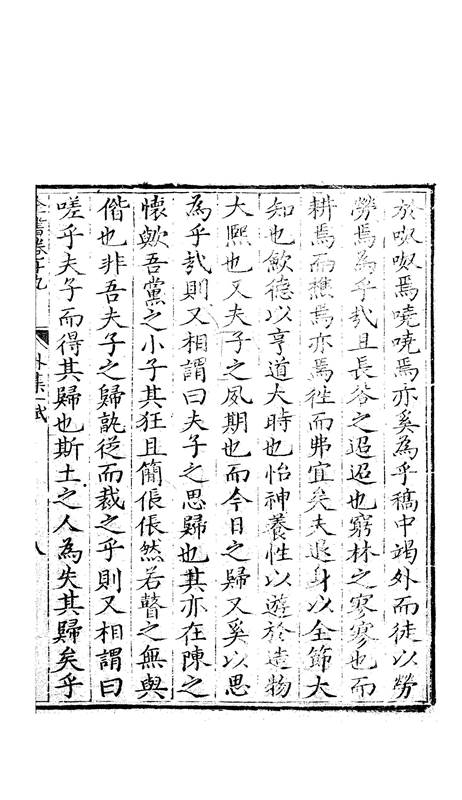 於呶呶焉嘵嘵焉亦奚為乎稿中竭外而徒以勞
勞焉為乎哉且長谷之迢迢也窮林之寥寥也而
耕焉而樵焉亦焉往而弗宜矣夫退身以全節大
知也歛德以亨道大時也怡神養性以遊於造物
大熙也又夫子之夙期也而今日之歸又奚以思
為乎哉則又相謂曰夫子之思歸也其亦在陳之
懷歟吾黨之小子其狂且簡倀倀然若瞽之無與
偕也非吾夫子之歸孰從而裁之乎則又相謂曰
嗟乎夫子而得其歸也斯土之人為失其歸矣乎
全書卷十九 外集一 賦 八